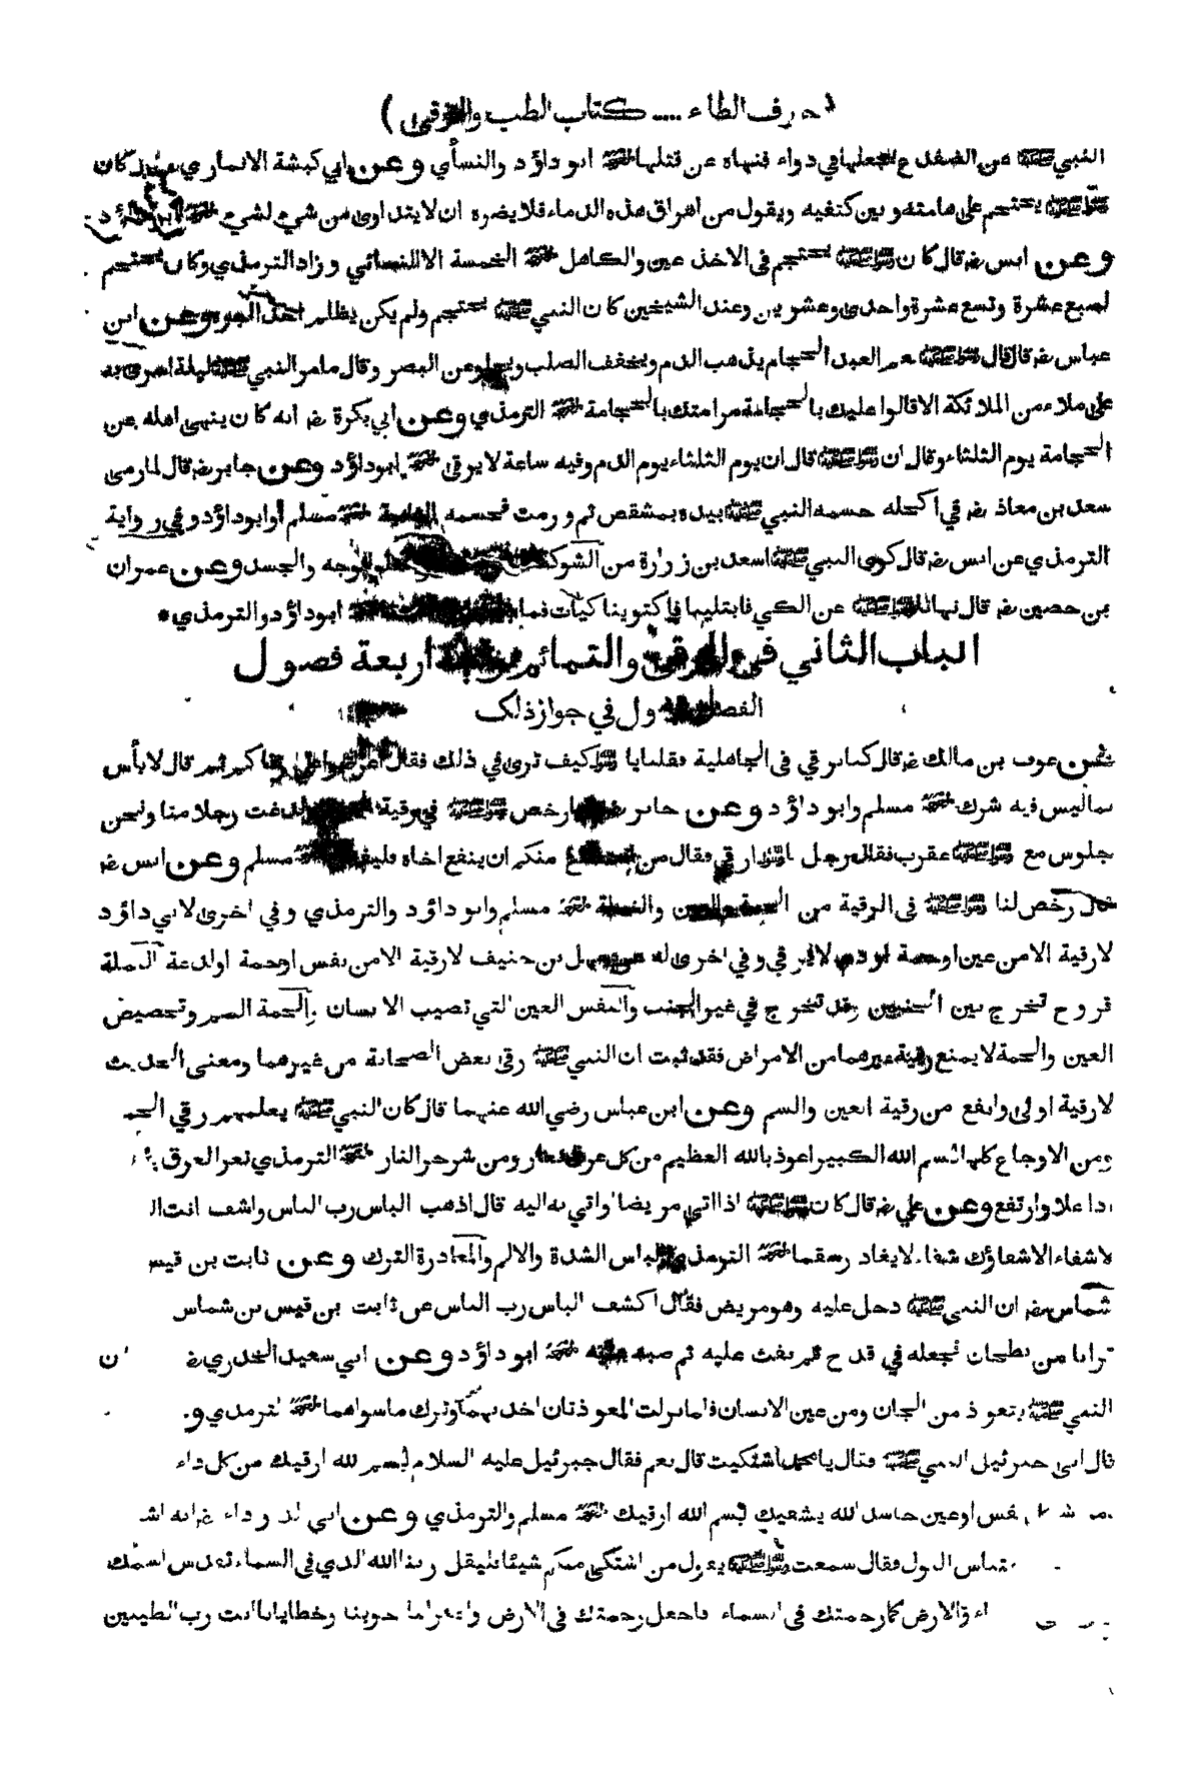 (حرف الطاء .... كتاب الطب والرقى)
النبي ﷺ عن الضفدع يجعلها في دواء فنهاه عن قتلها ابو داؤد والنسأي وعن ابي كبشة الانماري كان
ﷺ يحتجم على هامته وبين كتفيه ويقول من اهراق هذه الدماء فلا يضره ان لا يتداوى من شيء لشيء
وعن انس رض قال كان ﷺ يحتجم في الاخذ عين والكاهل الخمسة الا للنسائي وزاد الترمذي وكان يحتجم
لسبع عشرة وتسع عشرة واحدى وعشرين وعند الشيخين كان النبي ﷺ يحتجم ولم يكن يظلم احدا اجره وعن ابن
عباس رض قال قال ﷺ نعم العبد الحجام يذهب الدم ويخفف الصلب ويجلو عن البصر وقال ما مر النبي ﷺ ليلة اسرى به
على ملاء من الملائكة الا قالوا عليك بالحجامة مر امتك بالحجامة الترمذي وعن ابي بكرة رض انه كان ينهى اهله عن
الحجامة يوم الثلثاء وقال ان ﷺ قال ان يوم الثلثاء يوم الدم وفيه ساعة لا يرقى ابو داؤد وعن جابر رض قال لما رمى
سعد بن معاذ رض في اكحله حسمه النبي ﷺ بيده بمشقص ثم ورمت فحسمه مسلم وابو داؤد وفي رواية
الترمذي عن انس رض قال كوى النبي ﷺ اسعد بن زرارة من الشوكة الوجه والجسد وعن عمران
بن حصين رض قال نهانا ﷺ عن الكي فابتلينا فاكتوينا كيات فما ابو داؤد والترمذي *
الباب الثاني في الرقى والتمائم اربعة فصول
الفصل الاول في جواز ذلك
عن عوف بن مالك رض قال كنا نرقي في الجاهلية فقلنا يا ﷺ كيف ترى في ذلك فقال اعرضوا علي رقاكم ثم قال لا بأس
بما ليس فيه شرك مسلم وابو داؤد وعن جابر رض ارخص ﷺ في رقية لدغت رجلا منا ونحن
جلوس مع ﷺ عقرب فقال رجل يا ﷺ ارقي فقال من منكم ان ينفع اخاه مسلم وعن انس رض
قال رخص لنا ﷺ في الرقية من الحمة والعين والنملة مسلم وابو داؤد والترمذي وفي اخرى لابي داؤد
لا رقية الا من عين او حمة او دم لا يرقي وفي اخرى له بن حنيف لا رقية الا من نفس او حمة او لدغة النملة
قروح تخرج بين الجنبين وقد تخرج في غير الجنب والنفس العين التي تصيب الانسان والحمة السم وتخصيص
العين والحمة لا يمنع رقية غيرهما من الامراض فقد ثبت ان النبي ﷺ رقى بعض الصحابة من غيرهما ومعنى الحديث
لا رقية اولى وانفع من رقية العين والسم وعن ابن عباس رضي الله عنهما قال كان النبي ﷺ يعلمهم رقي الحمى
ومن الاوجاع كلها بسم الله الكبير اعوذ بالله العظيم من كل عرق نعار ومن شر حر النار الترمذي نعر العرق
اذا علا وارتفع وعن علي رض قال كان ﷺ اذا اتى مريضا او اتي به اليه قال اذهب الباس رب الناس واشف انت
لا شفاء الا شفاؤك شفاء لا يغادر سقما الترمذي الباس الشدة والالم والمغادرة الترك وعن ثابت بن قيس
شماس رض ان النبي ﷺ دخل عليه وهو مريض فقال اكشف الباس رب الناس عن ثابت بن قيس بن شماس
ترابا من بطحان فجعله في قدح ثم نفث عليه ثم صبه عليه ابو داؤد وعن ابي سعيد الخدري رض ان
النبي ﷺ يتعوذ من الجان ومن عين الانسان فلما نزلت المعوذتان اخذ بهما وترك ما سواهما الترمذي و
قال اتى جبرئيل النبي ﷺ فقال يا محمد اشتكيت قال نعم فقال جبرئيل عليه السلام بسم الله ارقيك من كل داء
نفس او عين حاسد الله يشفيك بسم الله ارقيك مسلم والترمذي وعن ابي الدرداء رض انه
احتباس البول فقال سمعت ﷺ يقول من اشتكى منكم شيئا فليقل ربنا الله الذي في السماء تقدس اسمك
والارض كما رحمتك في السماء فاجعل رحمتك في الارض واغفر لنا حوبنا وخطايانا انت رب الطيبين